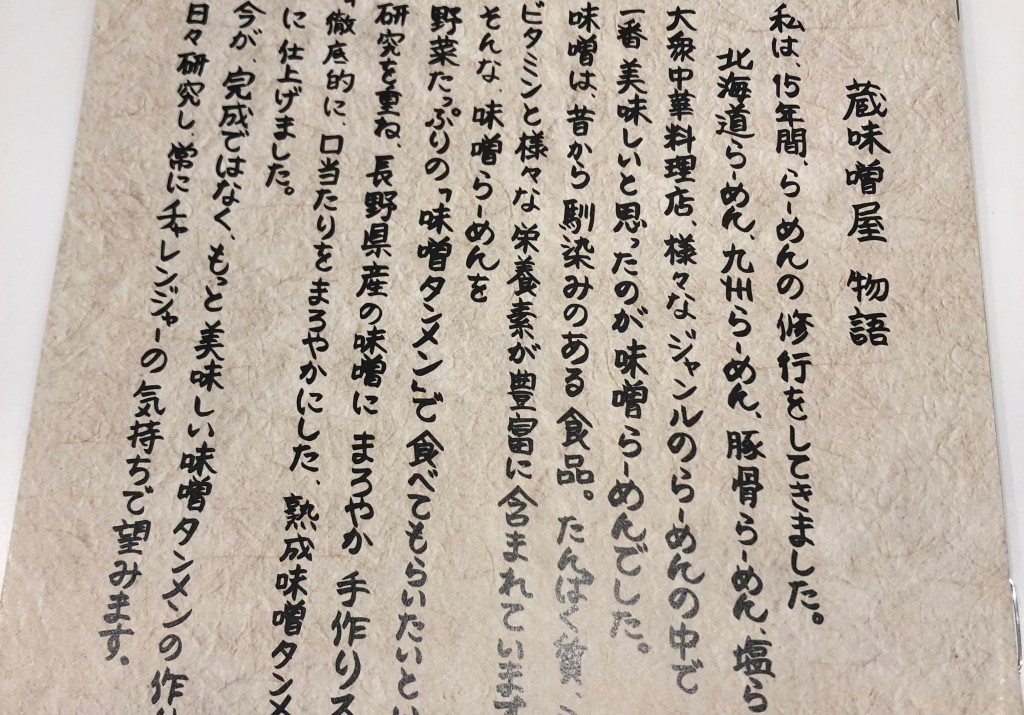 蔵味噌屋 物語
私は、15年間、らーめんの修行をしてきました。
北海道らーめん、九州らーめん、豚骨らーめん、塩ら
大衆中華料理店、様々なジャンルのらーめんの中で
一番美味しいと思ったのが味噌らーめんでした。
味噌は、昔から馴染みのある食品。たんぱく質、
ビタミンと様々な栄養素が豊富に含まれています
そんな、味噌らーめんを
野菜たっぷりの「味噌タンメン」で食べてもらいたいとい
研究を重ね、長野県産の味噌にまろやか手作りス
「徹底的に、口当たりをまろやかにした、熟成味噌タンメ
に仕上げました。
今が、完成ではなく、もっと美味しい味噌タンメンの作り
日々研究し、常にチャレンジャーの気持ちで望みます。